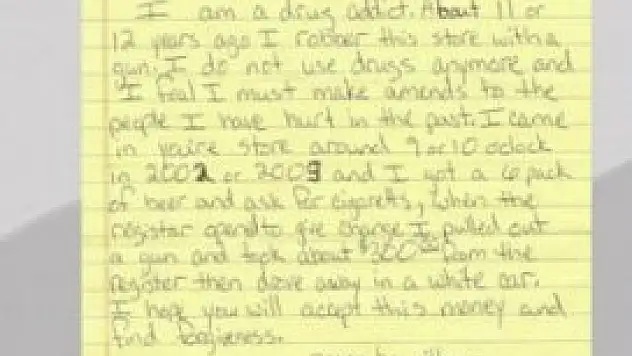 I am a drug addict. About 11 or
12 years ago I robber this store with a
gun. I do not use drugs anymore and
I feal I must make amends to the
people I have hurt in the past. I came
in youire store around 9 or 10 oclock
in 2002 or 2003 and I got a 6 pack
of beer and ask for cigaretts, when the
register opend to give change I pulled out
a gun and took about $300 from the
register then drove away in a white car.
I hope you will accept this money and
find forgiveness.